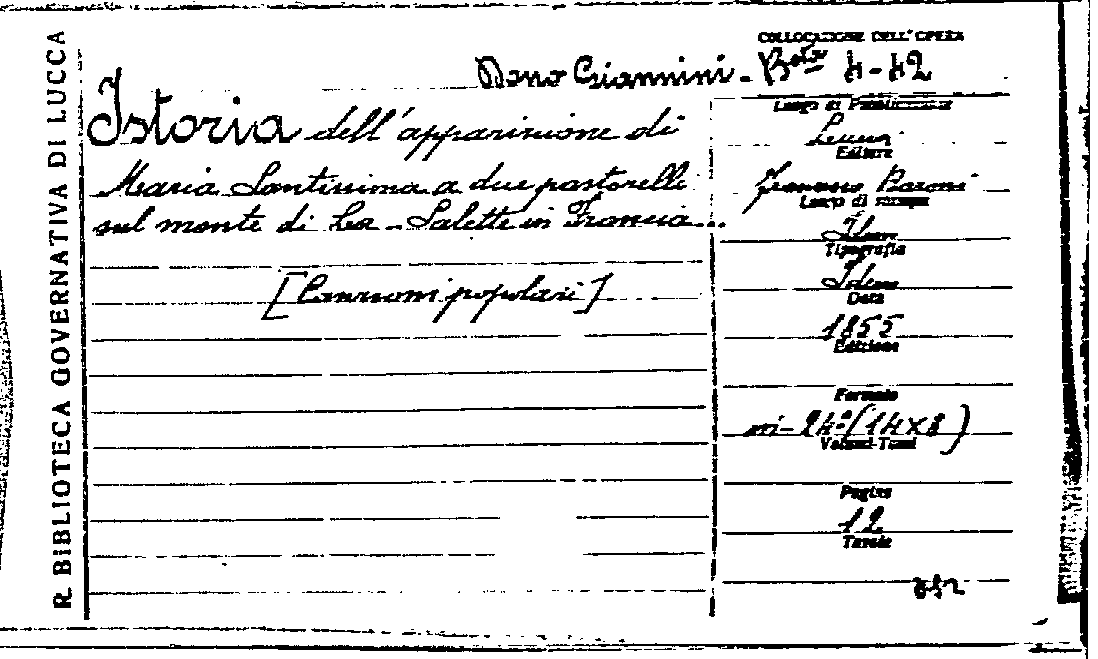 R. BIBLIOTECA GOVERNATIVA DI LUCCA
COLLOCAZIONE DELL'OPERA
Dono Giannini - B.ta 4-42
Istoria dell'apparizione di
Maria Santissima a due pastorelli
sul monte di La-Salette in Francia...
[Canzoni popolari]
Luogo di Pubblicazione
Lucca
Editore
Francesco Baroni
Luogo di stampa
Idem
Tipografia
Idem
Data
1855
Edizione
Formato
in-24º (14X8)
Volumi-Tomi
Pagine
12
Tavole